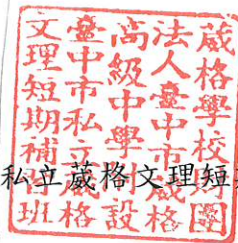 葳格學校財團
法人臺中市葳格
高級中學附設
臺中市私立葳格
文理短期補習班
私立葳格文理短